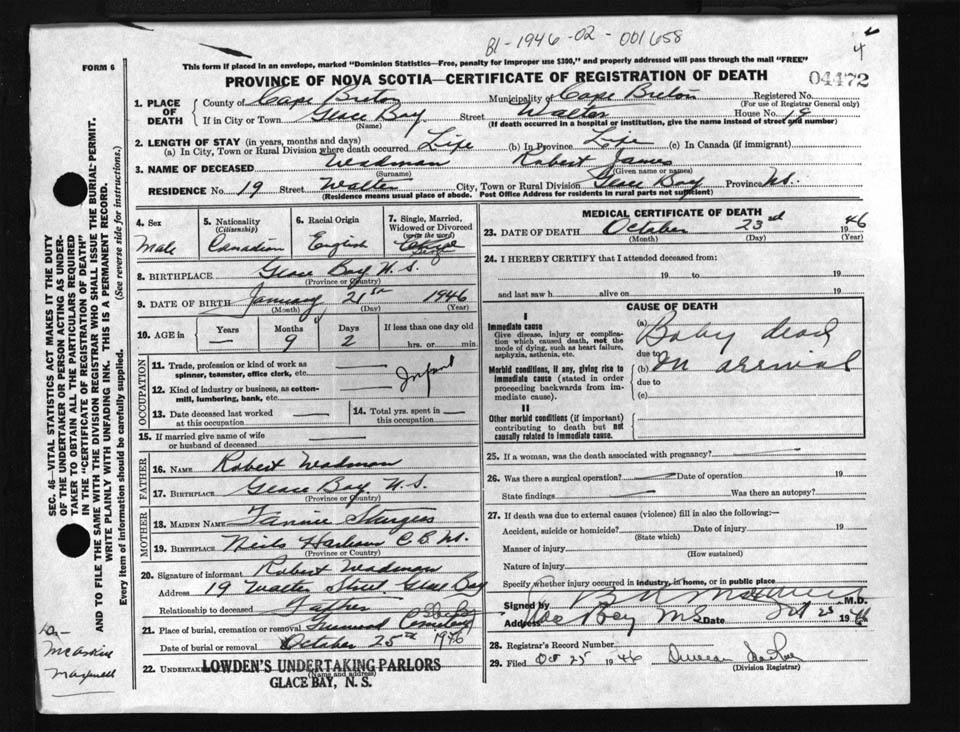 B1-1946-02-001658
4
FORM 6
This form if placed in an envelope, marked "Dominion Statistics—Free, penalty for improper use $300," and properly addressed will pass through the mail "FREE"
PROVINCE OF NOVA SCOTIA—CERTIFICATE OF REGISTRATION OF DEATH
04472
1. PLACE OF DEATH
County of Cape Breton Municipality of Cape Breton Registered No.
(For use of Registrar General only)
If in City or Town Glace Bay Street Walter House No. 19
(Name) (If death occurred in a hospital or institution, give the name instead of street and number)
2. LENGTH OF STAY (in years, months and days)
(a) In City, Town or Rural Division where death occurred Life (b) In Province Life (c) In Canada (if immigrant)
3. NAME OF DECEASED Wadman Robert James
(Surname) (Given name or names)
RESIDENCE No. 19 Street Walter City, Town or Rural Division Glace Bay Province N.S.
(Residence means usual place of abode. Post Office Address for residents in rural parts not sufficient)
4. Sex
Male
5. Nationality
(Citizenship)
Canadian
6. Racial Origin
English
7. Single, Married, Widowed or Divorced
(write the word)
8. BIRTHPLACE Glace Bay N.S.
(Province or Country)
9. DATE OF BIRTH January 21st 1946
(Month) (Day) (Year)
10. AGE in Years Months Days If less than one day old
— 9 2 hrs. or min.
OCCUPATION
11. Trade, profession or kind of work as spinner, teamster, office clerk, etc.
Infant
12. Kind of industry or business, as cotten-mill, lumbering, bank, etc.
13. Date deceased last worked at this occupation
14. Total yrs. spent in this occupation
15. If married give name of wife or husband of deceased
FATHER
16. NAME Robert Wadman
17. BIRTHPLACE Glace Bay N.S.
(Province or Country)
MOTHER
18. MAIDEN NAME Fannie Sturgess
19. BIRTHPLACE Neils Harbour C.B. N.S.
(Province or Country)
20. Signature of informant Robert Wadman
Address 19 Walter Street Glace Bay
Relationship to deceased Father
21. Place of burial, cremation or removal Greenwood Cemetery
Date of burial or removal October 25th 1946
22. UNDERTAKER
LOWDEN'S UNDERTAKING PARLORS
GLACE BAY, N. S.
MEDICAL CERTIFICATE OF DEATH
23. DATE OF DEATH October 23rd 1946
(Month) (Day) (Year)
24. I HEREBY CERTIFY that I attended deceased from:
19 to 19
and last saw h alive on 19
CAUSE OF DEATH
I
Immediate cause
Give disease, injury or complication which caused death, not the mode of dying, such as heart failure, asphyxia, asthenia, etc.
Morbid conditions, if any, giving rise to immediate cause (stated in order proceeding backwards from immediate cause).
II
Other morbid conditions (if important) contributing to death but not causally related to immediate cause.
(a) Baby dead
due to
(b) on arrival
due to
(c)
25. If a woman, was the death associated with pregnancy?
26. Was there a surgical operation? Date of operation 19
State findings Was there an autopsy?
27. If death was due to external causes (violence) fill in also the following:—
Accident, suicide or homicide? Date of injury 19
(State which)
Manner of injury
(How sustained)
Nature of injury
Specify whether injury occurred in industry, in home, or in public place
Signed by M.D.
Address Glace Bay N.S. Date Oct 25 1946
28. Registrar's Record Number
29. Filed Oct 25 1946
(Division Registrar)
SEC. 46—VITAL STATISTICS ACT MAKES IT THE DUTY
OF THE UNDERTAKER OR PERSON ACTING AS UNDER-
TAKER TO OBTAIN ALL THE PARTICULARS REQUIRED
IN THE "CERTIFICATE OF REGISTRATION OF DEATH"
AND TO FILE THE SAME WITH THE DIVISION REGISTRAR WHO SHALL ISSUE THE BURIAL PERMIT.
WRITE PLAINLY WITH UNFADING INK. THIS IS A PERMANENT RECORD.
Every item of information should be carefully supplied. (See reverse side for instructions.)